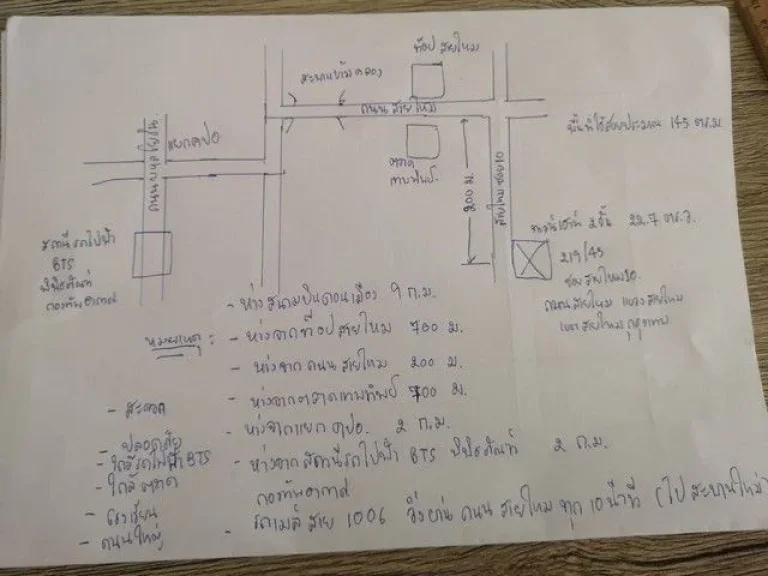 ท๊อป สายไหม
สะพานข้ามคลอง
ถนน สายไหม
ถนน พหลโยธิน
แยก คปอ
พื้นที่ใช้สอยประมาณ 145 ตร.ม
ตลาด
เทพทิพย์
200 ม.
สายไหม ซอย 10
สถานีรถไฟฟ้า
BTS
พิพิธภัณฑ์
กองทัพอากาศ
2 ชั้น 22.7 ตร.ว.
219/45
ซอย สายไหม 10
ถนน สายไหม แขวง สายไหม
เขต สายไหม กรุงเทพ
หมายเหตุ :
- ห่างสนามบินดอนเมือง 9 ก.ม.
- ห่างจากท๊อปสายไหม 700 ม.
- ห่างจากถนน สายไหม 200 ม.
- ห่างจากตลาดเทพทิพย์ 700 ม.
- ห่างจากแยก คปอ. 2 ก.ม.
- ห่างจากสถานีรถไฟฟ้า BTS พิพิธภัณฑ์ 2 ก.ม.
กองทัพอากาศ
- รถเมล์ สาย 1006 วิ่งผ่าน ถนน สายไหม ทุก 10 นาที (ไป สะพานใหม่)
- สะดวก
- ปลอดภัย
- ใกล้รถไฟฟ้า BTS
- ใกล้ตลาด
- โรงเรียน
- ถนนใหญ่